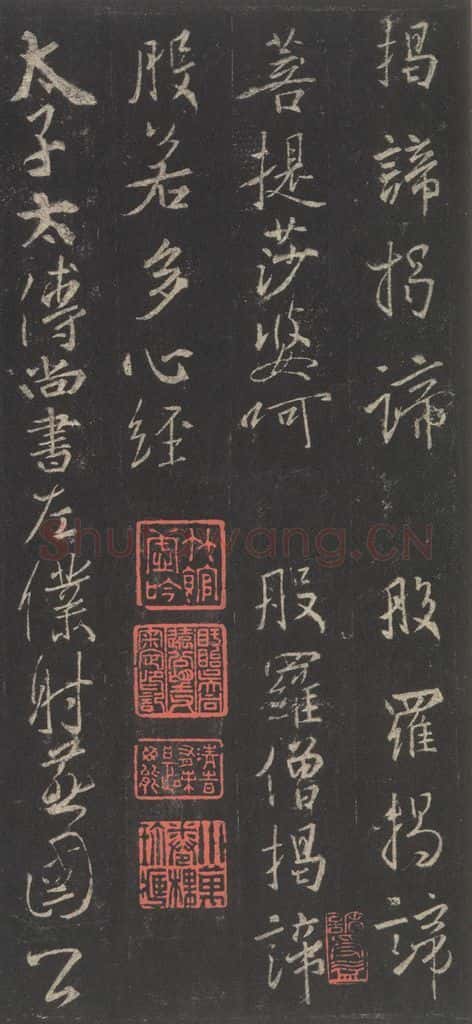 揭諦揭諦 般羅揭諦
菩提莎婆呵 般羅僧揭諦
般若多心經
太子太傅尚書左僕射燕國公